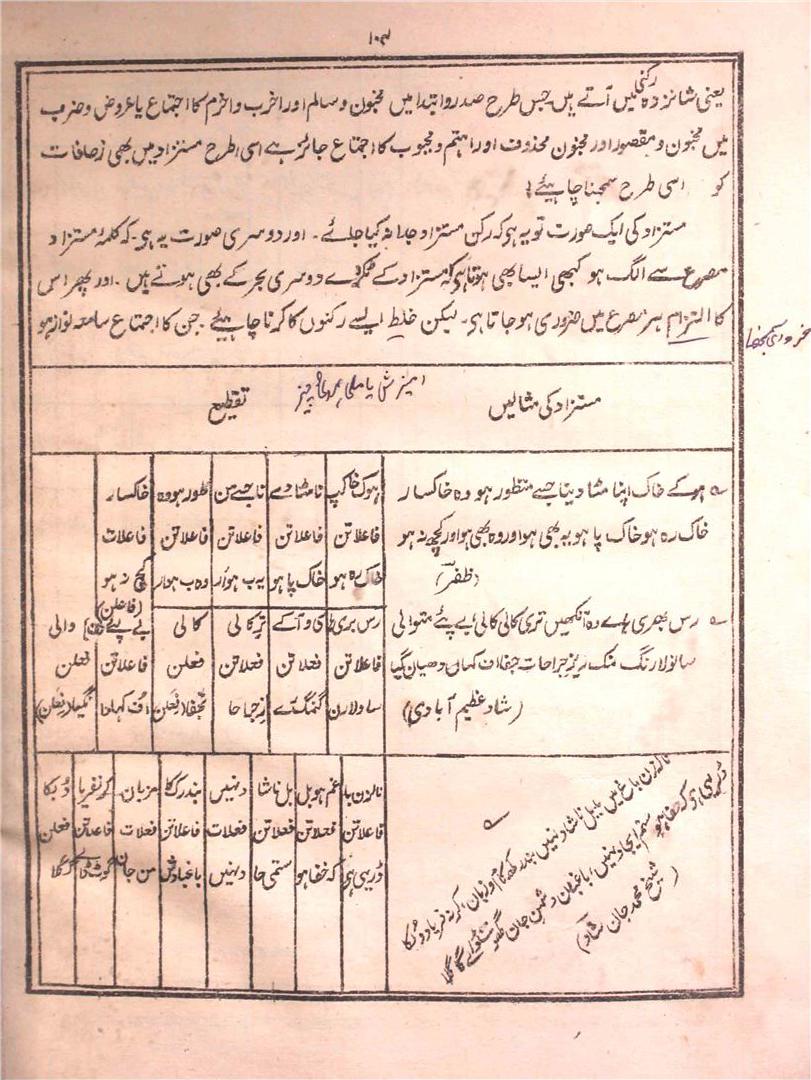 ۱۰۳
یعنی شانزدہ رکنی میں آتے ہیں جس طرح صدر و ابتدا میں مخبون و سالم اور اخرب و اخرم کا اجتماع یا عروض و ضرب
میں مخبون و مقصور اور مخبون محذوف اور اہتم و مجبوب کا اجتماع جائز ہے اسی طرح مستزاد میں بھی زحافات
کو اسی طرح سمجھنا چاہیئے!
مستزاد کی ایک صورت تو یہ ہی کہ رکن مستزاد جدا نہ کیا جائے۔ اور دوسری صورت یہ ہی۔ کہ کلمۂ مستزاد
مصرع سے الگ ہو کبھی ایسا بھی ہوتا ہی کہ مستزاد کے ٹکڑے دوسری بحر کے بھی ہوتے ہیں۔ اور پھر اس
کا التزام ہر مصرع میں ضروری ہو جاتا ہی۔ لیکن خلط ایسے رکنوں کا کرنا چاہیئے۔ جن کا اجتماع سامعہ نواز ہو
مستزاد کی مثالیں تقطیع
ہو کے خاک اپنا مٹا دینا جسے منظور ہو وہ خاکسار
خاک رہ ہو خاک پا ہو یہ بھی ہو اور وہ بھی ہو اور کچھ نہ ہو
(ظفر)
ہوک خاکپ نا مٹا دے نا جسے من ظور ہو وہ خاکسار
فاعلاتن فاعلاتن فاعلاتن فاعلاتن فاعلات
خاک رہ ہو خاک پا ہو یہ ب ہو اُر وہ ب ہو ار کچ نہ ہو
(فاعلن)
رس بھری ہے وہ آنکھیں تری کالی کالی بے پئے متوالی
سانولا رنگ نمک ریز جراحات جفا اف کہاں دھیان گیا
(شاد عظیم آبادی)
رس بری ہا ی و آ کے تر کالی کالی بے پئے والی
فاعلاتن فعلاتن فعلاتن فعلن فاعلاتن فعلن
ساولارن گنمک رے ز جراحا تجفا (فعلن) اف کہاں دا نگیا (فعلن)
نالہ زن باغ میں ہو بلبل ناشاد نہیں بند رکھ کام و زبان، کر نہ فریاد و بُکا
ڈر یہی ہی کہ خفا ہو ستم ایجاد نہیں، باغباں دشمن جان گھونٹ ڈالے گا گلا
(شیخ محمد جان شاد)
نالہ زن با غم ہو بل بل ناشا د نہیں بند رک کا مزبان کر نفریا د بکا
فاعلاتن فعلاتن فعلاتن فعلات فاعلاتن فعلات فاعلاتن فعلن
ڈر یہی ہی کہ خفا ہو ستمی جا د نہیں باغبا دش من جان